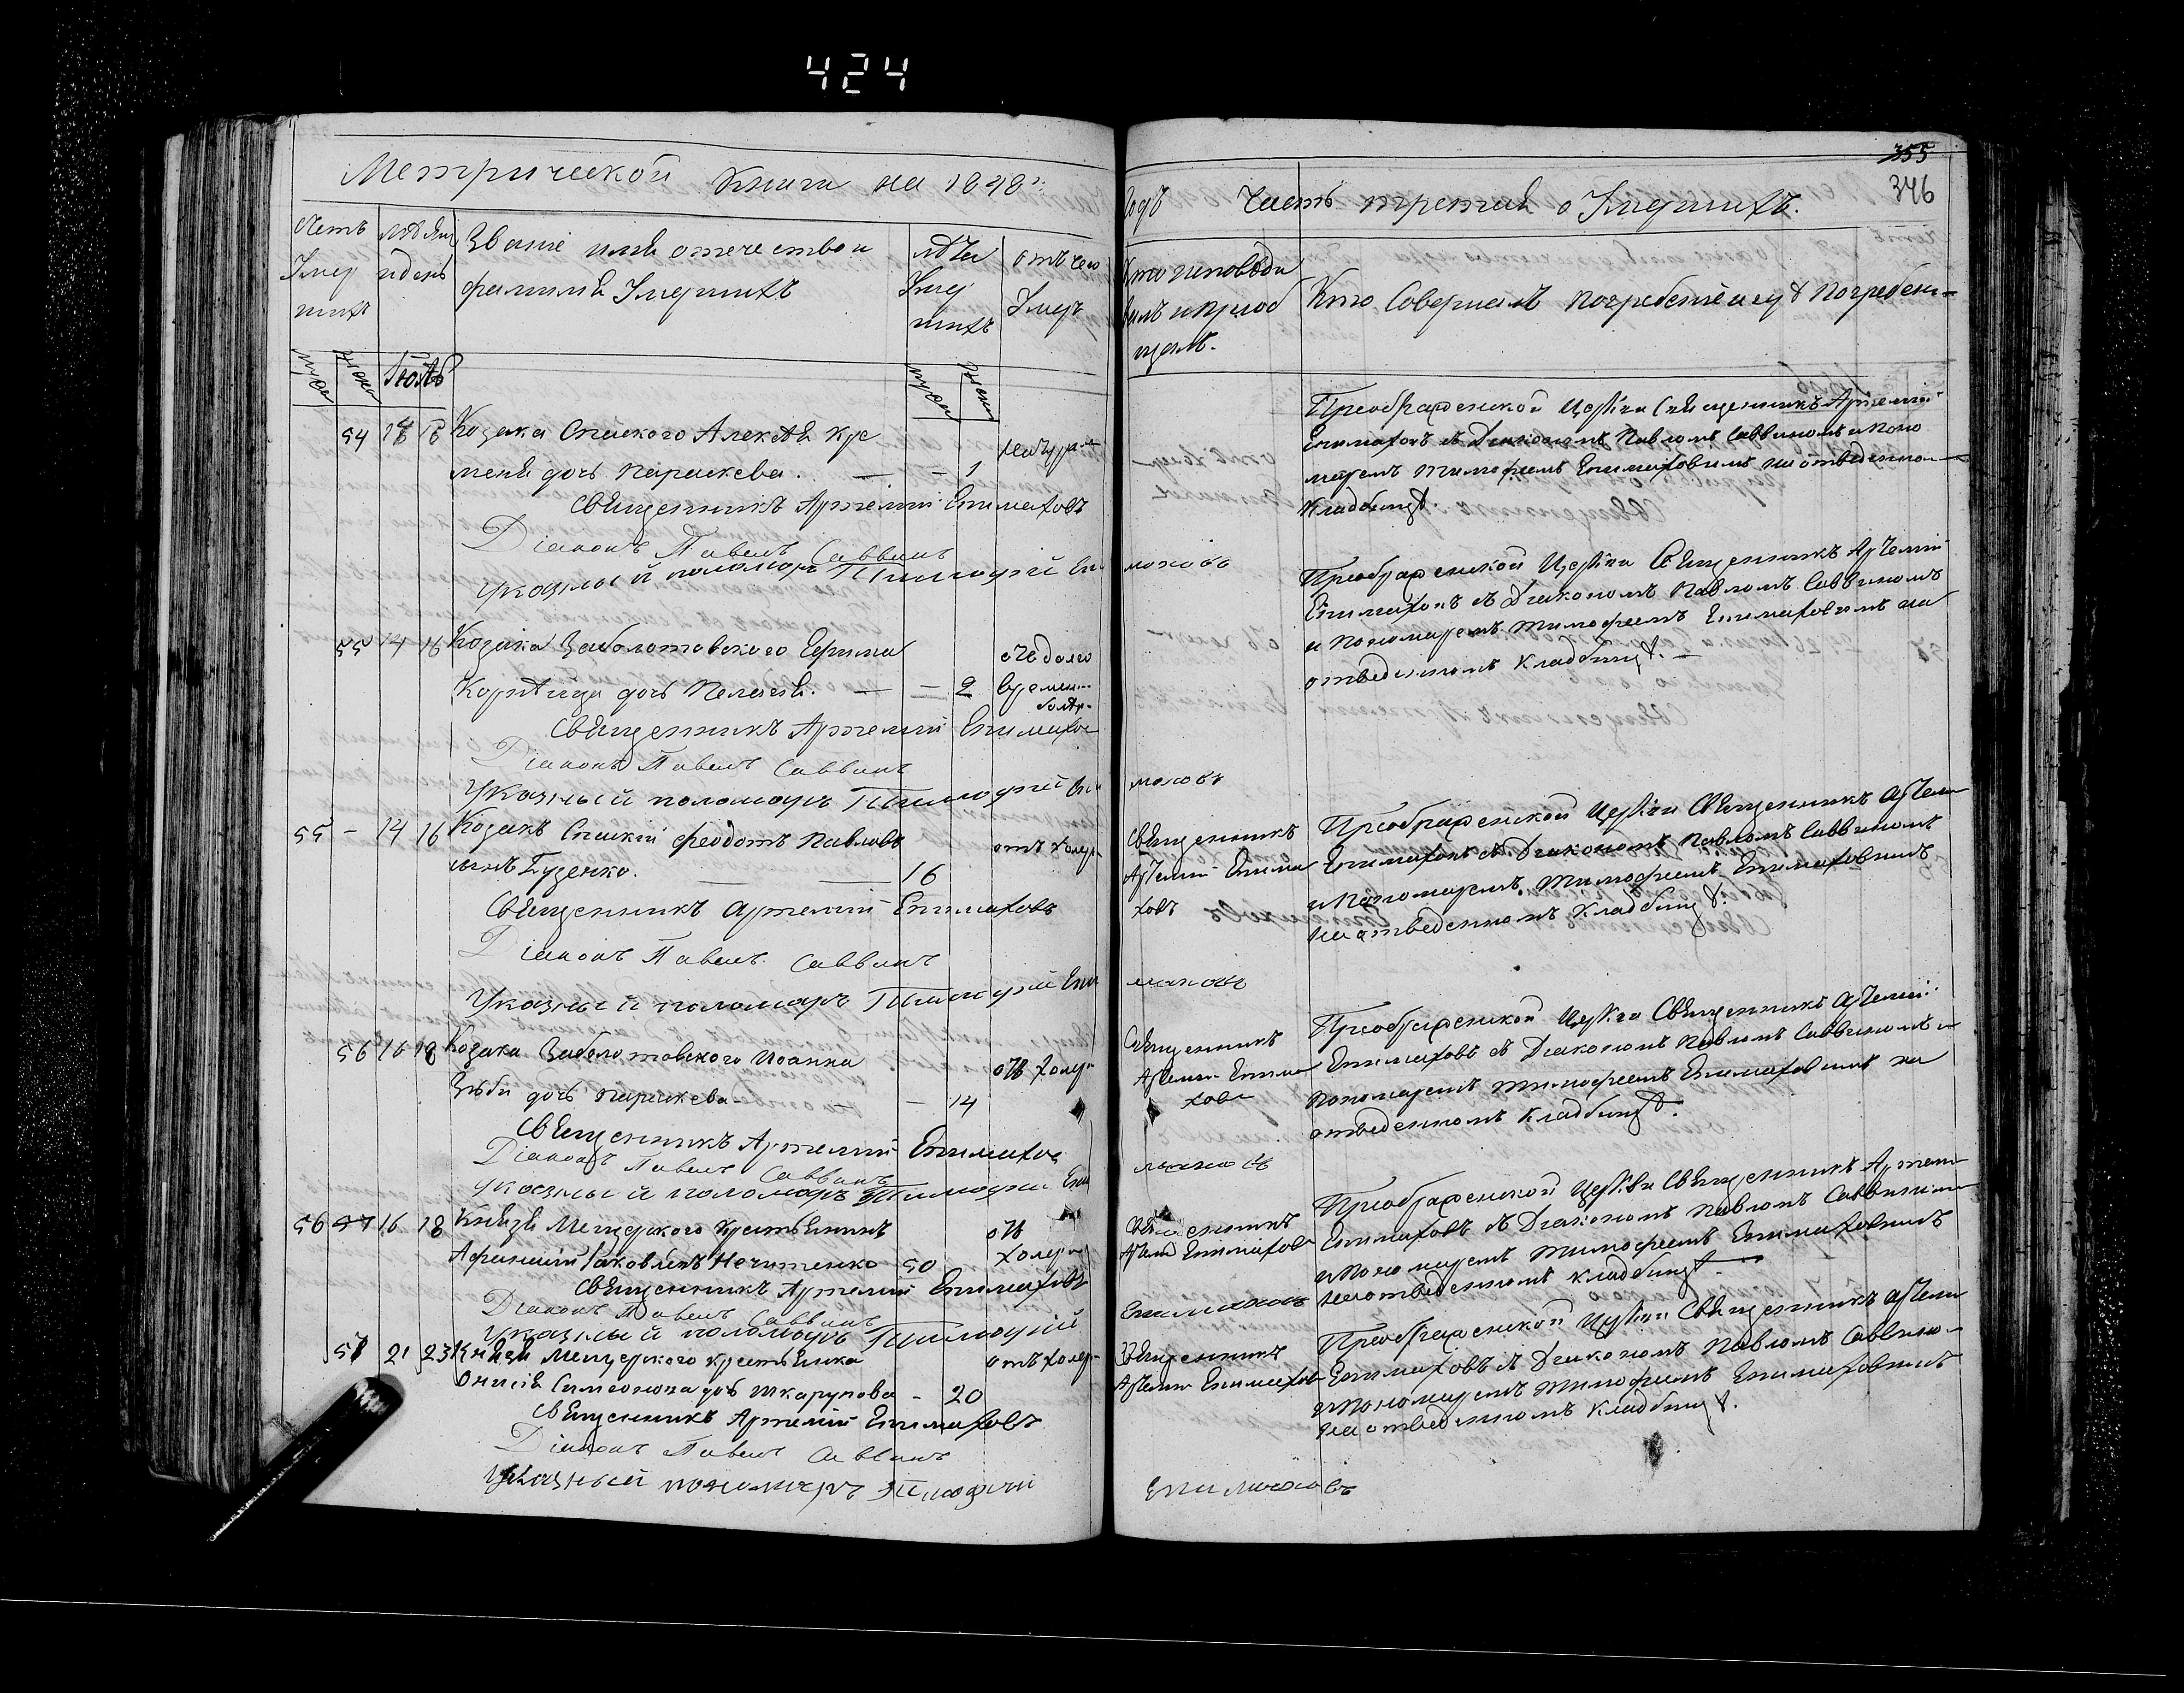 424
355
346
Метрической Книги на 1848й
годъ Часть третия о Умершихъ.
Счетъ Умер шихъ
мѣсяц и день
Званіе имя отечество и фамилія Умершихъ
лѣта Умер шихъ
отъ чего Умеръ
Кто исповѣды валъ и приоб щалъ.
Кто Совершалъ погребеніе и гдѣ Погребены
муж женс
муж женс
54 18
Козака Спаского Алексѣя Кре
меня дочь Параскева. — — 1
Священникъ Артемій Епимаховъ
Діаконъ Павелъ Саввинъ
Указный поломарь Тимофій Епи
маховъ
Преображенской Церкви Священникъ Артемій
Епимаховъ съ Диакономъ Павломъ Саввиномъ и поно
маремъ Тимофеемъ Епимаховимъ на отведенно
Кладбищѣ.
55 14 16
Козака Заболотовского Ефима
дочь Пелагея. — — 2
времен
Священникъ Артемій Епимахо
Діаконъ Павелъ Саввинъ
Указный поломарь Тимофій Епи
маховъ
Преображенской Церкви Священникъ Артемій
Епимаховъ съ Диакономъ Павломъ Саввиномъ
и пономаремъ Тимофеемъ Епимаховимъ на
отведенномъ Кладбищѣ. —
55 — 14 16
Козакъ Спаскій Феодотъ Павловъ
сынъ Гузенко. — — 16
отъ холер
Священникъ Артемій Епимаховъ
Діаконъ Павелъ Саввинъ
Указный поломарь Тимофій Епи
маховъ
Священникъ
Артемій Епима
ховъ
Преображенской Церкви Священникъ Артеми
Епимаховъ съ Диакономъ Павломъ Саввиномъ
и Пономаремъ Тимофеемъ Епимаховимъ
на отведенномъ Кладбищѣ.
56 16 18
Козака Заболотовского Иоанна
дочь Параскева — — 14
отъ холер
Священникъ Артемій Епимахов
Діаконъ Павелъ Саввинъ
Указный поломарь Тимофій Епи
маховъ
Священникъ
Артемій Епима
ховъ
Преображенской Церкви Священникъ Артемій
Епимаховъ съ Диакономъ Павломъ Саввиномъ и
Пономаремъ Тимофеемъ Епимаховимъ на
отведенномъ Кладбищѣ.
56 57 16 18
Князя Мещерского крестьянинъ
Афанасій Іаковлевъ Нечитенко 50
отъ холеры
Священникъ Артемій Епимаховъ
Діаконъ Павелъ Саввинъ
Указный поломарь Тимофій
Епимаховъ
Священникъ
Артемій Епимахов
Преображенской Церкви Священникъ Артеми
Епимаховъ съ Диакономъ Павломъ Саввиномъ
и Пономаремъ Тимофеемъ Епимаховимъ
на отведенномъ Кладбищѣ.
57 21 23
Князя Мещерского крестьянка
Онисія Симеонова дочь Шкарупова — 20
отъ холер
Священникъ Артемій Епимаховъ
Діаконъ Павелъ Саввинъ
Указный пономарь Тимофій
Епимаховъ
Священникъ
Артемій Епимахов
Преображенской Церкви Священникъ Артеми
Епимаховъ съ Диакономъ Павломъ Саввино
и Пономаремъ Тимофеемъ Епимаховимъ
на отведенномъ Кладбищѣ.